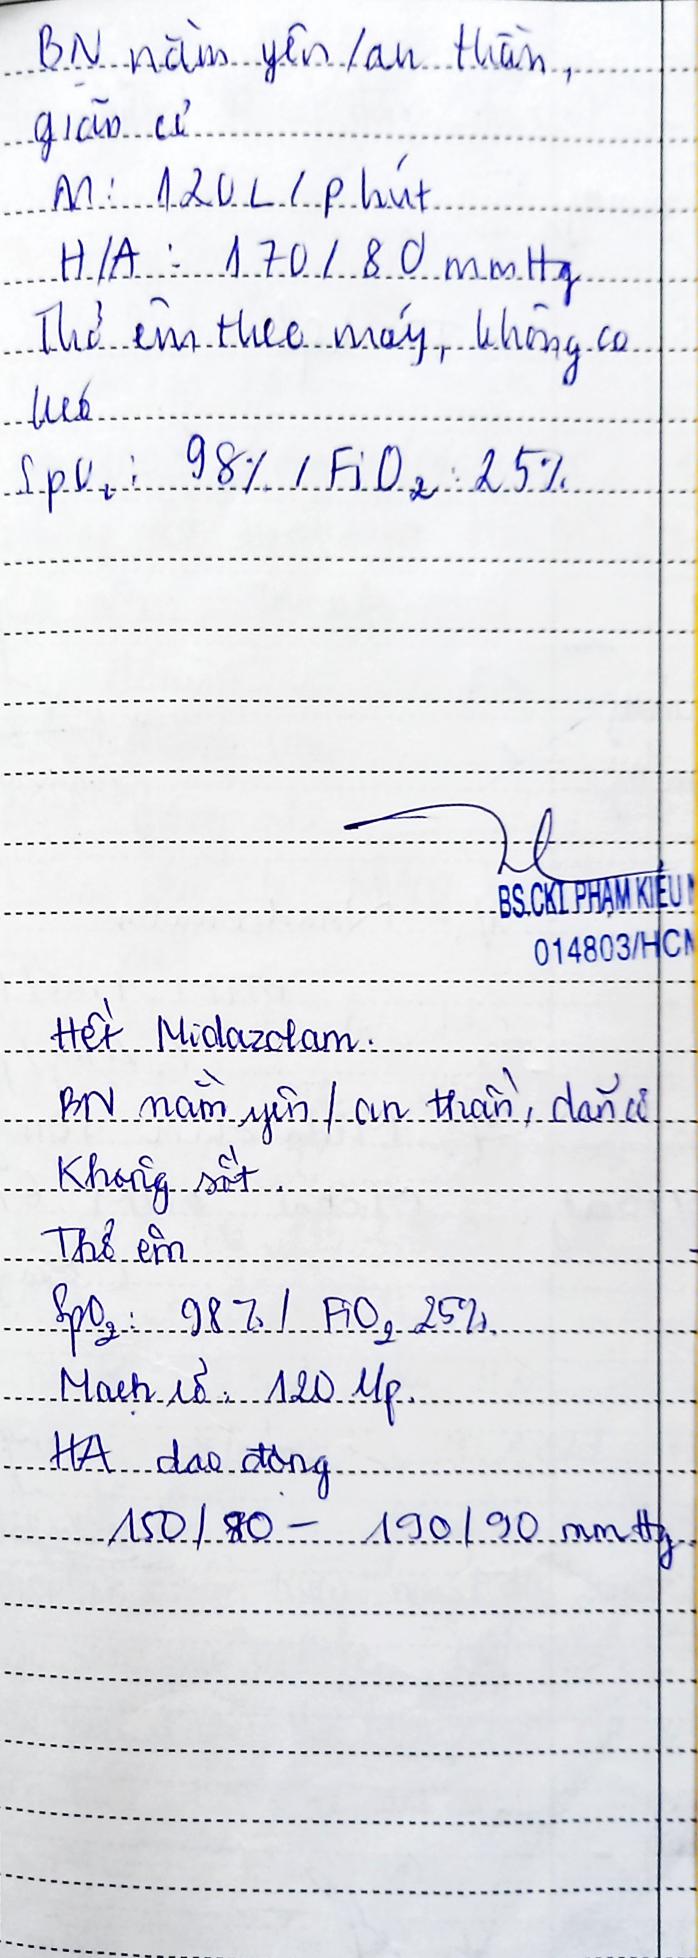 BN nằm yên/an thần,
giãn cơ
M: 120 L/phút
H/A: 170/80 mmHg
Thở êm theo máy, không co
kéo
SpO₂: 98% / FiO₂: 25%
BS.CKI. PHẠM KIỀU
014803/HCM
Hết Midazolam.
BN nằm yên / an thần, dãn cơ
Không sốt.
Thở êm
SpO₂: 98% / FiO₂ 25%.
Mạch rõ: 120 l/p.
HA dao động
150/80 - 190/90 mmHg